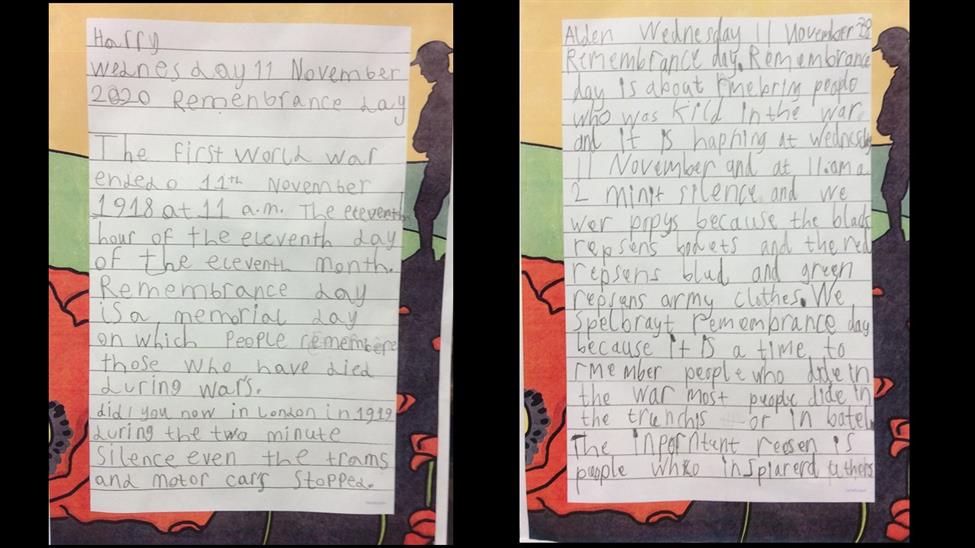 Harry
Wednesday 11 November
2020 Remenbrance day
The first world war
ended o 11th November
1918 at 11 a.m. The eleventh
hour of the eleventh day
of the eleventh month.
Remembrance day
is a memorial day
on which people remembere
those who have died
during war's.
did you now in London in 1919
during the two minute
silence even the trams
and motor cars stopped.
Alden Wednesday 11 november 20
Remembrance day. Remembrance
day is about rmebrin people
who was kild in the war
and it is haphing at wednesday
11 November and at 11:am a
2 minit silence and we
wer popys because the black
repsens and the red
repsens blud and green
repsens army clothes. We
spelbrayt remembrance day
because it is a time to
rmember people who dide in
the war most people dide in
the trunchis or in batel
The inporntant reosen is
people who insparerd